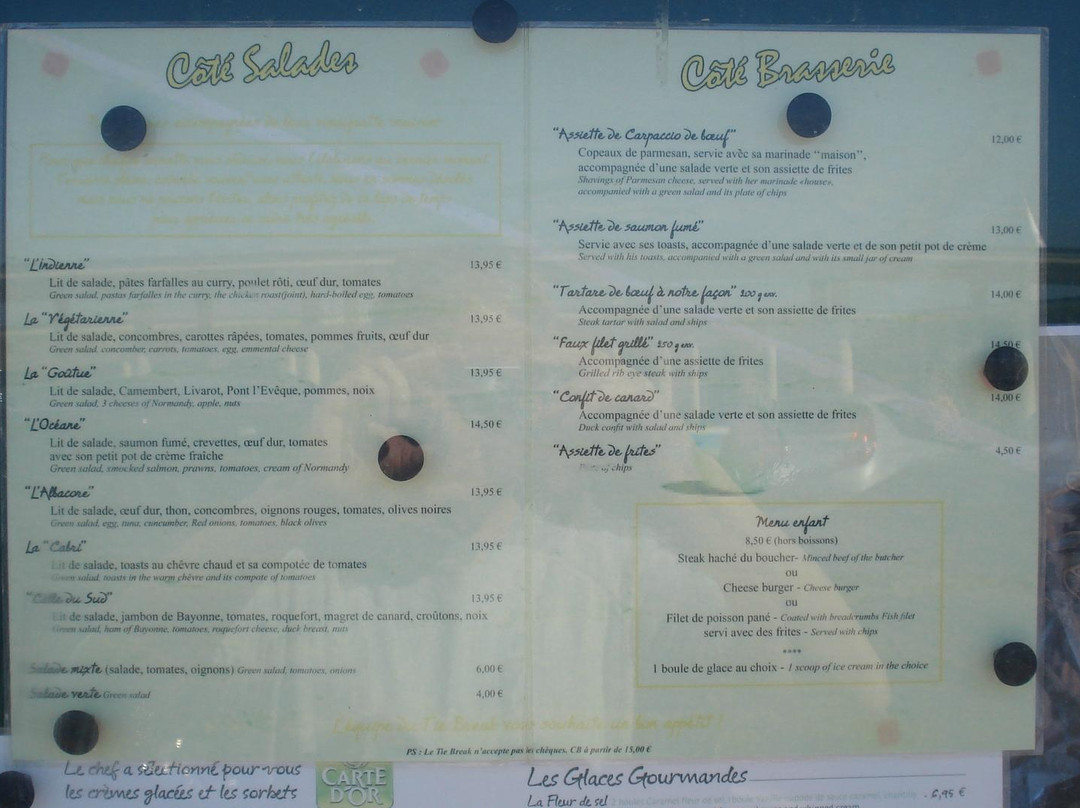 Côté Salades
"L'indienne" 13,95 €
Lit de salade, pâtes farfalles au curry, poulet rôti, œuf dur, tomates
Green salad, pastas farfalles in the curry, the chicken roast(joint), hard-boiled egg, tomatoes
La "Végétarienne" 13,95 €
Lit de salade, concombres, carottes râpées, tomates, pommes fruits, œuf dur
Green salad, concomber, carrots, tomatoes, egg, emmental cheese
La "Goûtue" 13,95 €
Lit de salade, Camembert, Livarot, Pont l'Evêque, pommes, noix
Green salad, 3 cheeses of Normandy, apple, nuts
"L'Océane" 14,50 €
Lit de salade, saumon fumé, crevettes, œuf dur, tomates
avec son petit pot de crème fraîche
Green salad, smocked salmon, prawns, tomatoes, cream of Normandy
"L'Albacore" 13,95 €
Lit de salade, œuf dur, thon, concombres, oignons rouges, tomates, olives noires
Green salad, egg, tuna, cuncumber, Red onions, tomatoes, black olives
La "Cabri" 13,95 €
Lit de salade, toasts au chèvre chaud et sa compotée de tomates
Green salad, toasts in the warm chèvre and its compote of tomatoes
du Sud" 13,95 €
Lit de salade, jambon de Bayonne, tomates, roquefort, magret de canard, croûtons, noix
Green salad, ham of Bayonne, tomatoes, roquefort cheese, duck breast, nuts
Salade mixte (salade, tomates, oignons) Green salad, tomatoes, onions 6,00 €
Salade verte Green salad 4,00 €
Côté Brasserie
"Assiette de Carpaccio de bœuf" 12,00 €
Copeaux de parmesan, servie avec sa marinade "maison",
accompagnée d'une salade verte et son assiette de frites
Shavings of Parmesan cheese, served with her marinade «house»,
accompanied with a green salad and its plate of chips
"Assiette de saumon fumé" 13,00 €
Servie avec ses toasts, accompagnée d'une salade verte et de son petit pot de crème
Served with his toasts, accompanied with a green salad and with its small jar of cream
"Tartare de bœuf à notre façon" 200 g env. 14,00 €
Accompagnée d'une salade verte et son assiette de frites
Steak tartar with salad and ships
"Faux filet grillé" 250 g env. 14,50 €
Accompagnée d'une assiette de frites
Grilled rib eye steak with ships
"Confit de canard" 14,00 €
Accompagnée d'une salade verte et son assiette de frites
Duck confit with salad and ships
"Assiette de frites" 4,50 €
of chips
Menu enfant
8,50 € (hors boissons)
Steak haché du boucher- Minced beef of the butcher
ou
Cheese burger - Cheese burger
ou
Filet de poisson pané - Coated with breadcrumbs Fish filet
servi avec des frites - Served with chips
****
1 boule de glace au choix - 1 scoop of ice cream in the choice
L'équipe du Tie Break vous souhaite un bon appétit !
PS : Le Tie Break n'accepte pas les chèques. CB à partir de 15,00 €
Le chef a sélectionné pour vous
les crèmes glacées et les sorbets
CARTE
D'OR
Les Glaces Gourmandes
La Fleur de sel 6,95 €